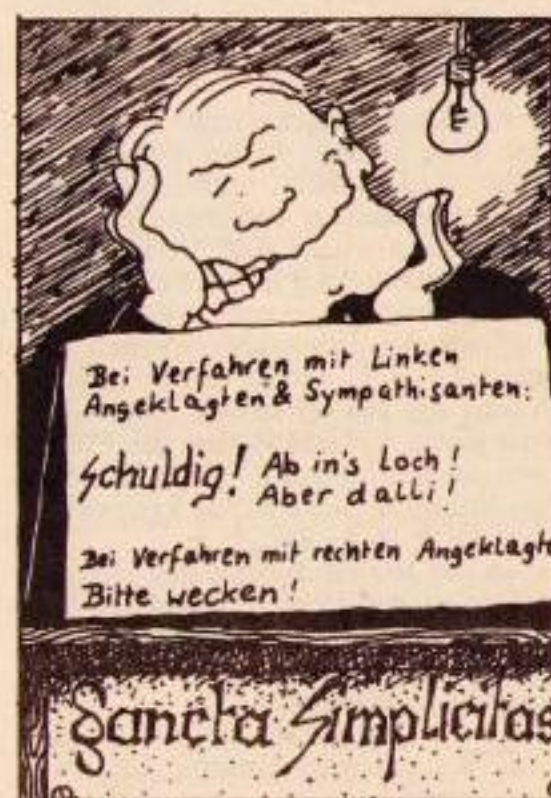 Bei Verfahren mit Linken
Angeklagten & Sympathisanten:
Schuldig! Ab in's Loch!
Aber dalli!
Bei Verfahren mit rechten Angeklagte
Bitte wecken!
Sancta Simplicitas